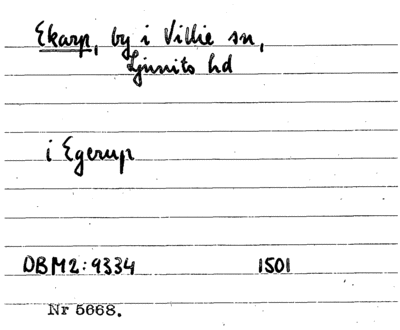 Ekarp, by i Villie sn,
Ljunits hd
i Egerup
DBM2:9334 1501
Nr 5668.